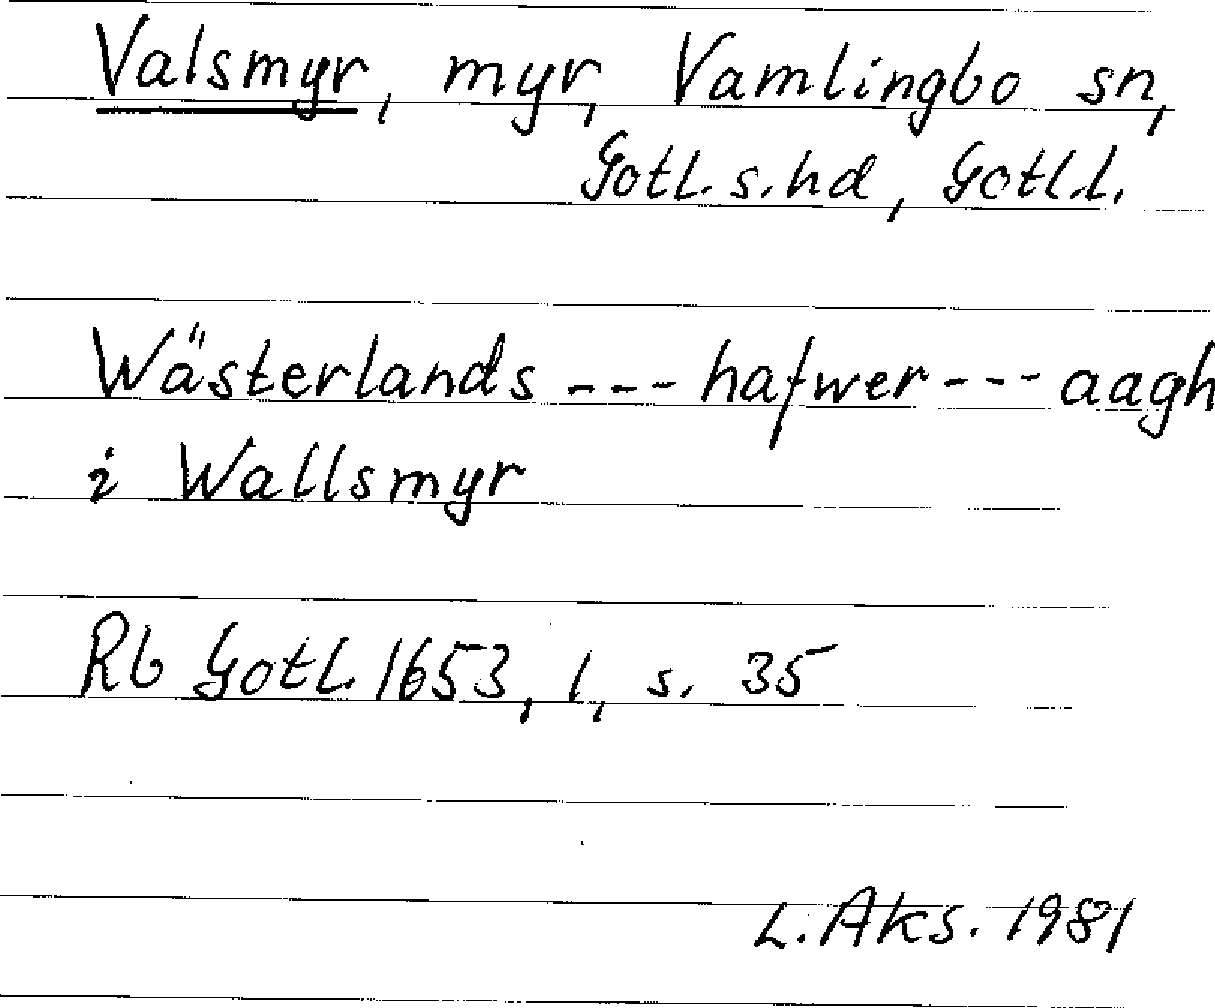 Valsmyr, myr, Vamlingbo sn,
Gotl. s. hd, Gotl. l.
Wästerlands --- hafwer --- aagh
i Wallsmyr
Rb Gotl. 1653, 1, s. 35
L. Aks. 1981